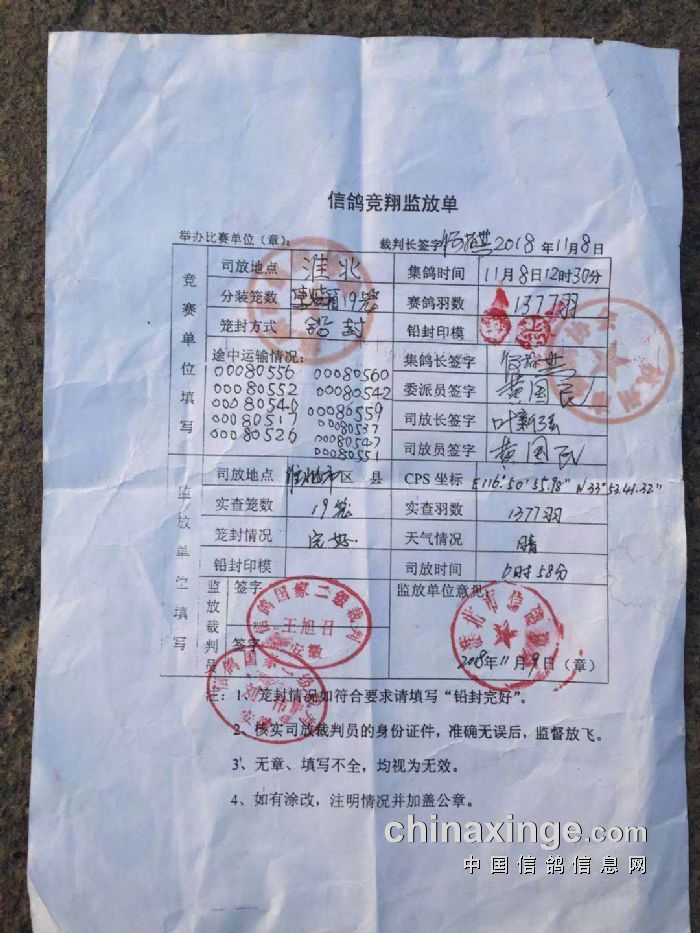 信鸽竞翔监放单
举办比赛单位（章）： 裁判长签字 2018 年11月8日
竞赛单位填写
司放地点 淮北 集鸽时间 11月8日12时30分
分装笼数 19笼 赛鸽羽数 1377羽
笼封方式 铅封 铅封印模
途中运输情况： 集鸽长签字
00080556 00080560
00080552 00080542 委派员签字 黄国民
00080559
00080517 00080537 司放长签字 叶新强
00080526 00080547
00080551 司放员签字 黄国民
监放单位填写
司放地点 淮北市区 县 CPS 坐标 E116°50′35.98″ N33°53.41.32″
实查笼数 19笼 实查羽数 1377羽
笼封情况 完好 天气情况 晴
铅封印模 司放时间 6时58分
监放裁判员 签字 监放单位意见：
信鸽国家二级裁判
王旭召
安徽
签字
2018年11月9日（章）
注：1、笼封情况如符合要求请填写“铅封完好”。
2、核实司放裁判员的身份证件，准确无误后，监督放飞。
3、无章、填写不全，均视为无效。
4、如有涂改，注明情况并加盖公章。
chinaxinge.com
中国信鸽信息网